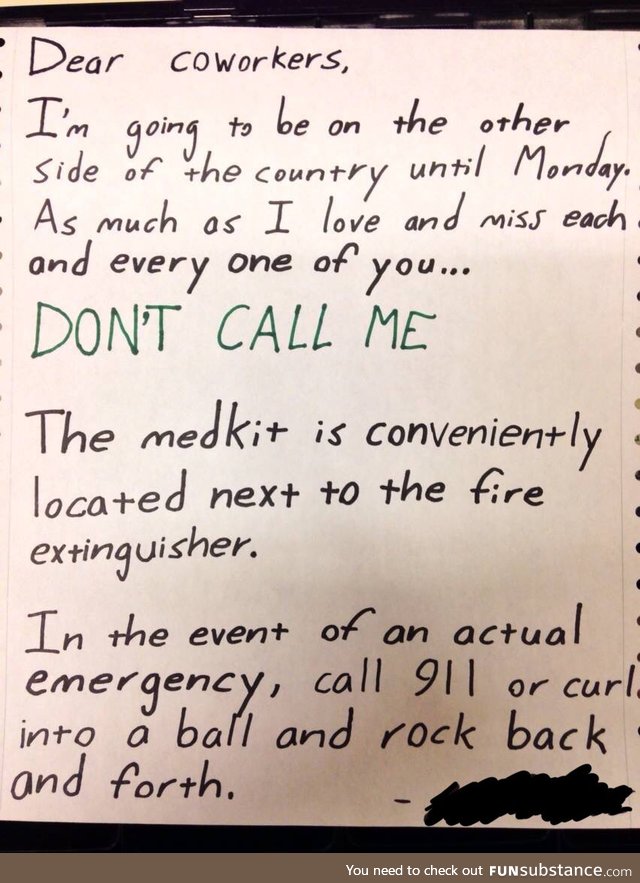 Dear coworkers,
I'm going to be on the other
side of the country until Monday.
As much as I love and miss each
and every one of you...
DON'T CALL ME
The medkit is conveniently
located next to the fire
extinguisher.
In the event of an actual
emergency, call 911 or curl
into a ball and rock back
and forth.
-
You need to check out FUNsubstance.com